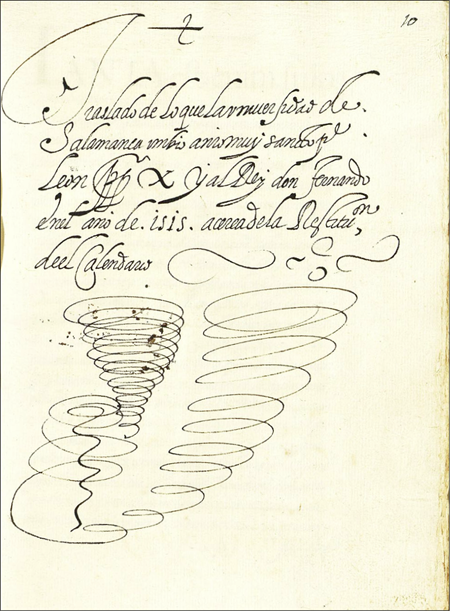 10
Traslado de lo que la vniuersidad de.
Salamanca imbio a nro muy sancto pe.
Leon pp X y al Rey don Fernando
en el año de .1515. acerca de la Restituon
de el Calendario